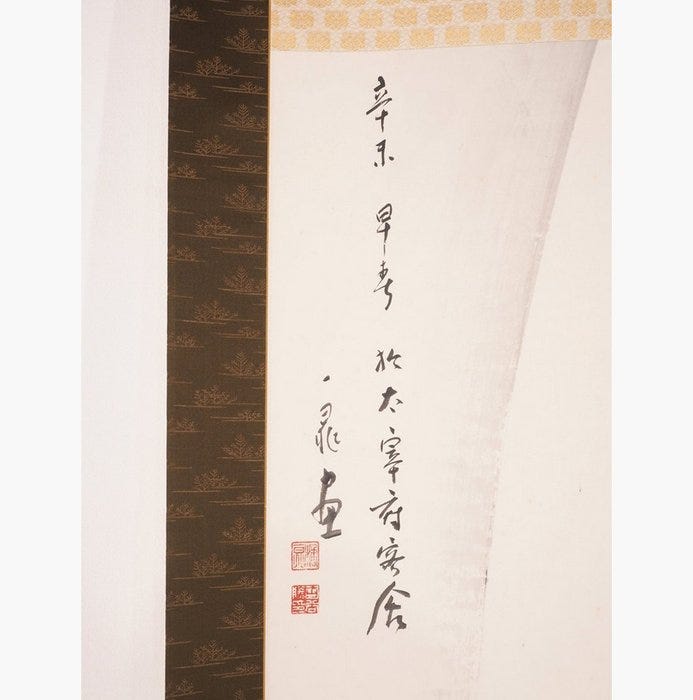 辛未 早春 於太宰府客舎
一晁画